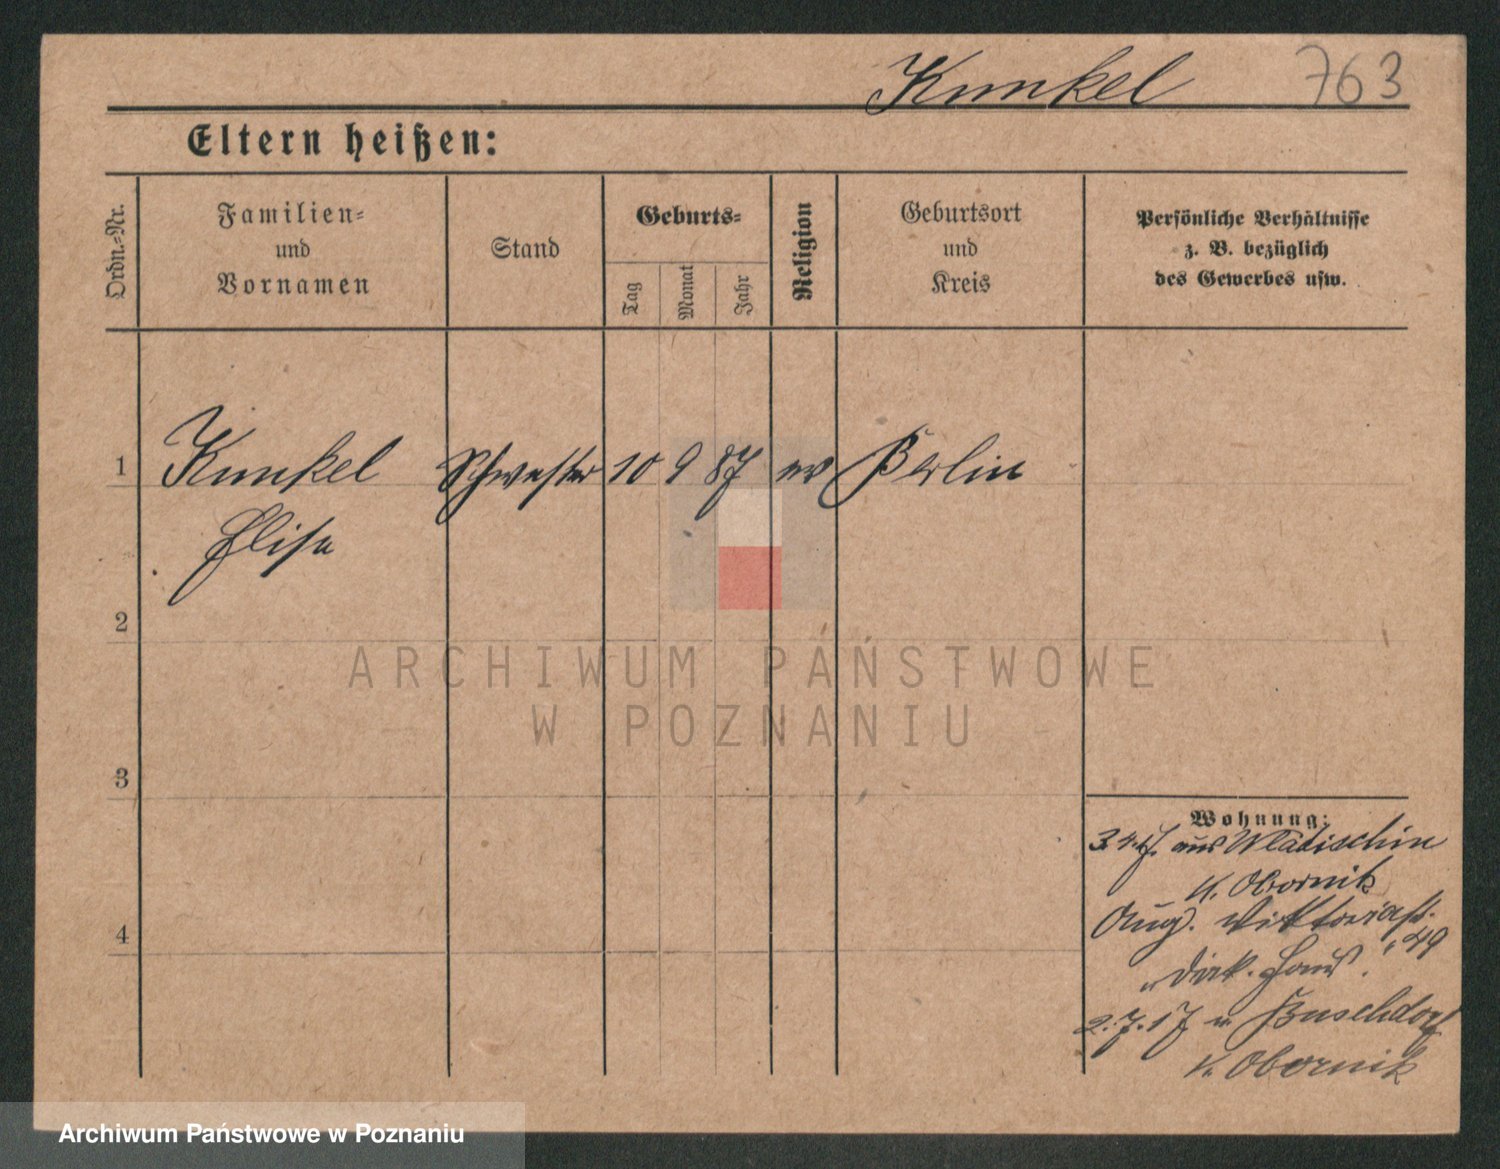 Kunkel 763
Eltern heißen:
Ordn.-Nr.
Familien-
und
Vornamen
Stand
Geburts-
Tag
Monat
Jahr
Religion
Geburtsort
und
Kreis
Persönliche Verhältnisse
z. B. bezüglich
des Gewerbes usw.
1 Kunkel Schwester 10 9 87 ev Berlin
Elise
2
3
4
Wohnung:
aus Wladischin
K. Obornik
Aug. Viktoriastr.
49
"Diak. Haus."
2.7.17 n. Buschdorf
K. Obornik
ARCHIWUM PAŃSTWOWE
W POZNANIU
Archiwum Państwowe w Poznaniu